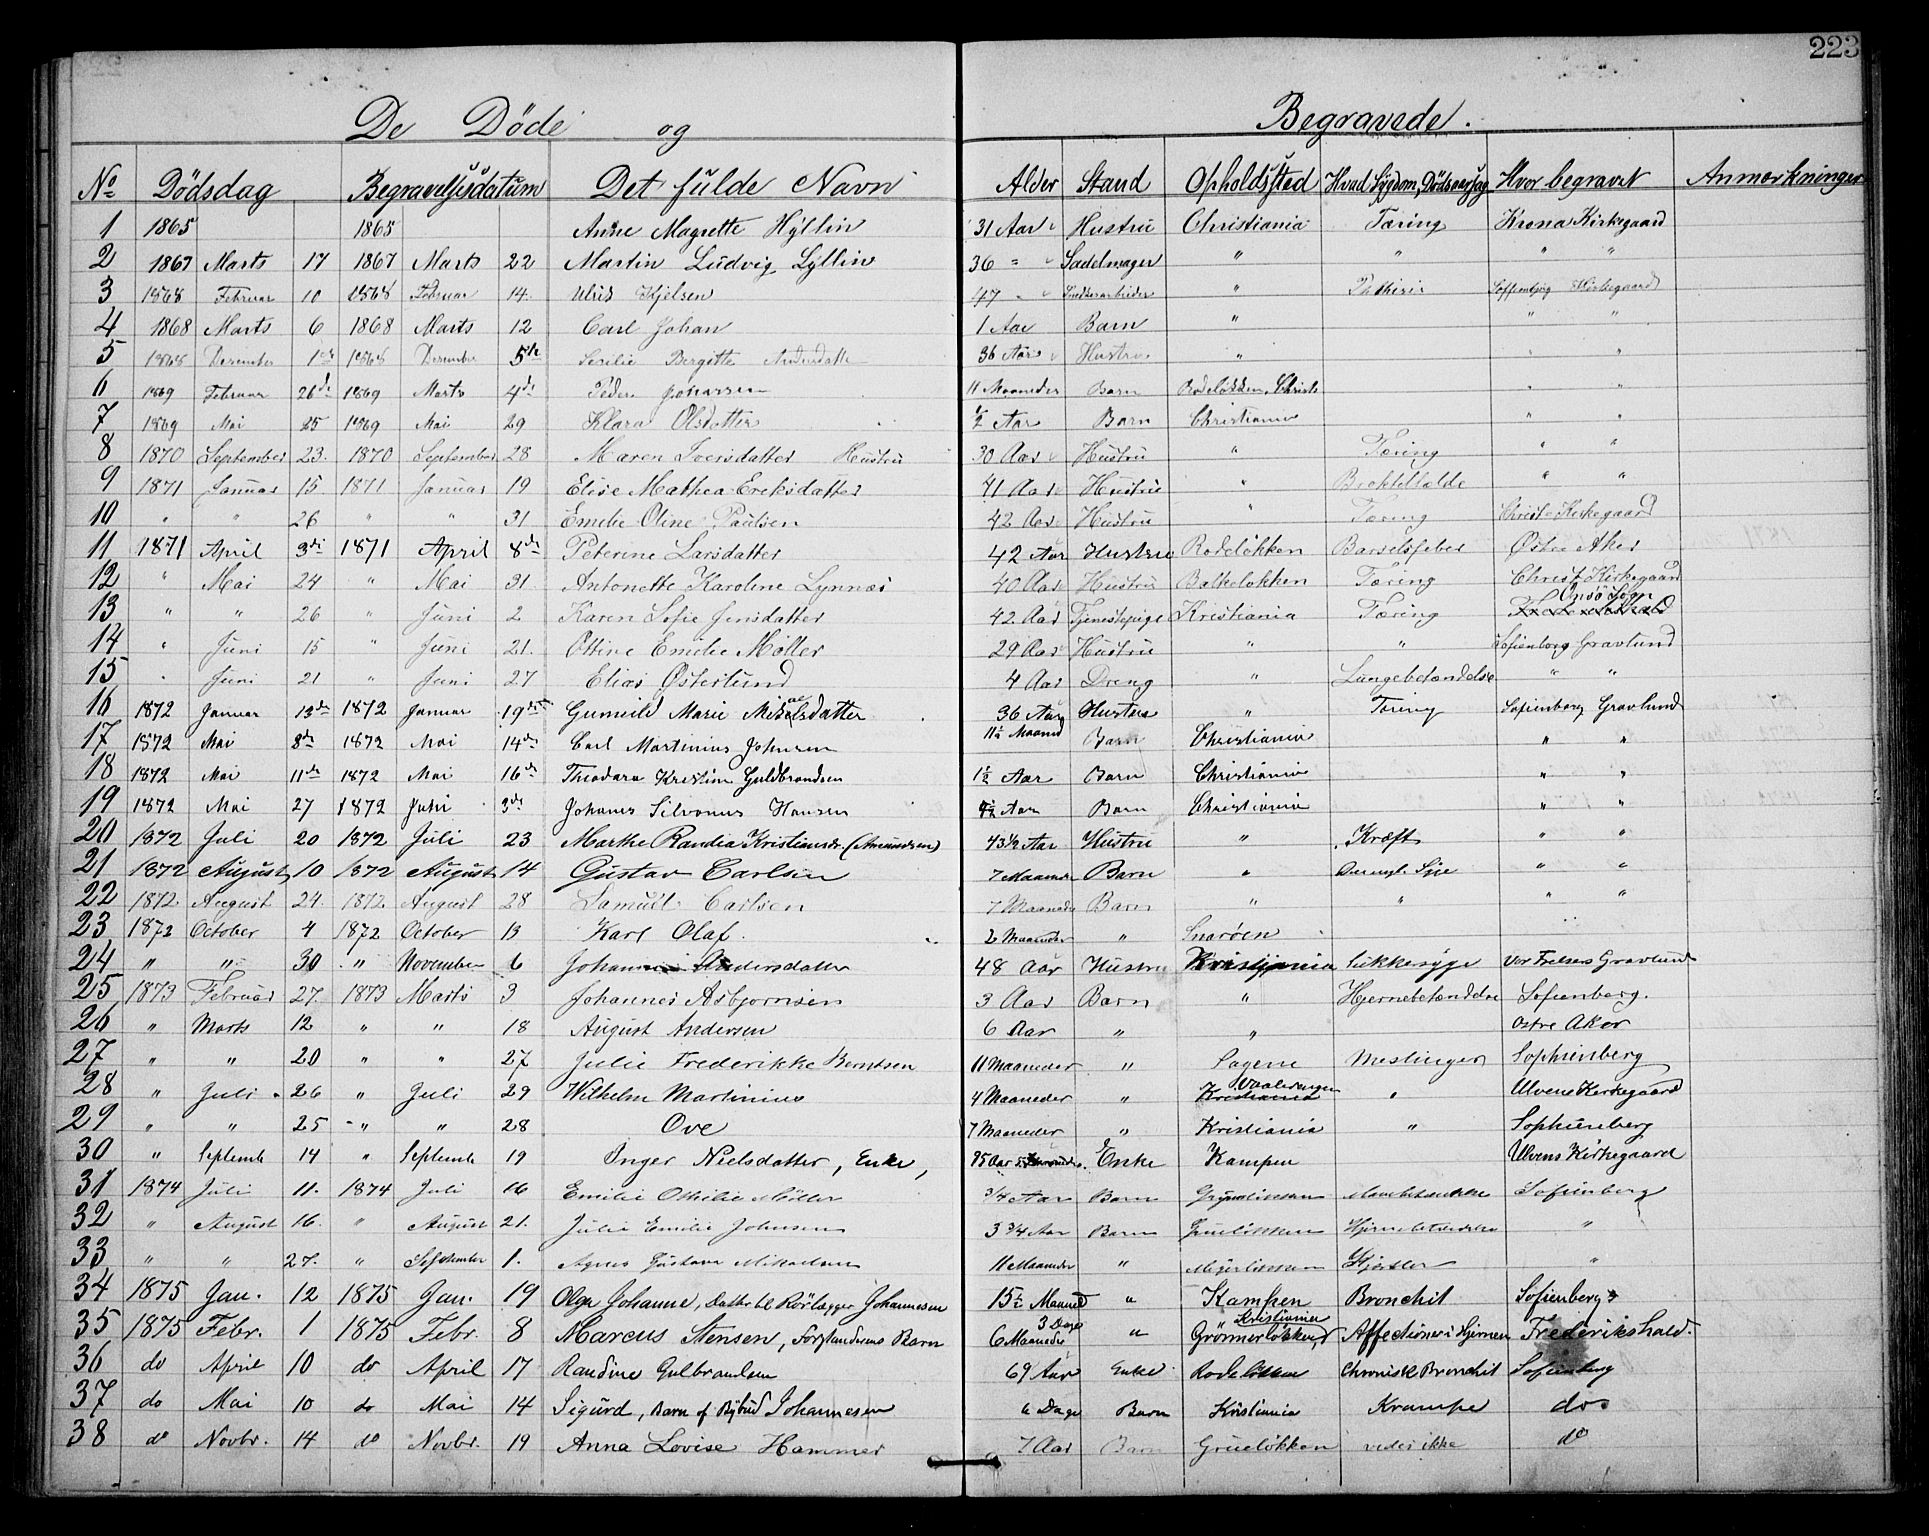 223
De Döde og Begravede.
No Dödsdag Begravelsesdatum Det fulde Navn Alder Stand Opholdssted Hvad Sygdom, Dödsaarsag Hvor begravet Anmærkninger
1 1865 1865 Anne Magrette Hyllin 31 Aar Hustru Christiania Tæring Krona Kirkegaard
2 1867 Marts 17 1867 Marts 22 Martin Ludvig Lyllin 36 " Sadelmager " " " "
3 1868 Februar 10 1868 Februar 14. Ulrik Kjelsen 47 " Snedkerarbeider " Soffienbjg Kirkegaard
4 1868 Marts 6 1868 Marts 12 Carl Johan 1 Aar Barn " " "
5 1868 Desember 1 1868 Desember 5te Sesilie Bergitte Andersdatte 36 Aar Hustru " " "
6 1869 Februar 26de 1869 Marts 4de Peder Johansen 11 Maaneder Barn Rodeløkken, Christi " "
7 1869 Mai 25 1869 Mai 29 Klara Olsdatter ½ Aar Barn Christiania " "
8 1870 September 23. 1870 September 28 Maren Iversdatter Hustru 30 Aar Hustru " Tæring " "
9 1871 Januar 15. 1871 Januar 19 Elise Mathea Eriksdatter 41 Aar Hustru " " "
10 " " 26 " " 31 Emelie Oline Paulsen 42 Aar Hustru " Tæring Christ Kirkegaard
11 1871 April 3die 1871 April 8de Peterine Larsdatter 42 Aar Hustru Rodeløkken Barselsfeber Østre Aker
12 " Mai 24 " Mai 31 Antonette Karoline Lynnæs 40 Aar Hustru Balkeløkken Tæring Christ Kirkegaard
13 " " 26 " Juni 2 Karen Sofie Jensdatter 42 Aar Tjenestepige Kristiania Tæring Onsö Sogn
14 " Juni 15 " Juni 21. Ottine Emilie Möller 29 Aar Hustru " " Sofienberg Gravlund
15 " Juni 21 " Juni 27 Elias Østerlund 4 Aar Dreng " Lungebetændelse " "
16 1872 Januar 13de 1872 Januar 19de Gunhild Marie Mikaelsdatter 36 Aar Hustru " Tæring Sofienberg Gravlund
17 1872 Mai 8de 1872 Mai 14de Carl Martinius Johnsen 11½ Maaned Barn Christiania " "
18 1872 Mai 11de 1872 Mai 16de Theodora Kristine Guldbrandsen 1½ Aar Barn Christiania " "
19 1872 Mai 27 1872 Juni 3de Johanes Silvanus Hansen Aar Barn Christiania " "
20 1872 Juli 20 1872 Juli 23 Marthe Randia Kristiansdr. (Amundsen) 43½ Aar Hustru " Kræft " "
21 1872 August 10 1872 August 14 Gustav Carlsen 7 Maaneder Barn " " "
22 1872. August 24. 1872. August 28 Samuel Carlsen 7 Maaneder Barn " " " "
23 1872 October 4 1872 October 13 Karl Olaf. 2 Maaneder " Snarøen "
24 " " 30 " November 6 Johanne Andersdatter 48 Aar Hustru Kristiania Sukkesyge Vor Frelsers Gravlund
25 1873 Februar 27. 1873 Marts 3 Johannes Asbjørnsen 3 Aar Barn " Hjernebetændelse Sofienberg.
26 " Marts 12 " " 18 August Andersen 6 Aar " " Østre Aker
27 " " 20 " " 27 Julie Frederikke Berntsen 11 Maaneder " Sagene Meslinger Sophienberg
28 " Juli 26 " Juli 29 Wilhelm Martinius 4 Maaneder " Kristiania Vaalerengen " Ulvens Kirkegaard
29 " " 25 " " 28 Ove 7 Maaneder " Kristiania " Sophienberg
30 " Septemb 14 " Septemb 19 Inger Nielsdatter, Enke, Enke Kampen Ulvens Kirkegaard
31 1874 Juli 11. 1874 Juli 16 Emilie Othilie Möller 3/4 Aar Barn Sofienberg
32 " August 16. " August 21. Julie Emilie Johnsen 3 3/4 Aar Barn Grueløkken Hjernebetændelse "
33 " " 27. " September 1. Agnes Gustava Mikaelsen 11 Maaneder " "
34 1875 Jan. 12 1875 Jan. 19 Olga Johanne, Datter til Rörlægger Johannesen 15½ Maaned " Kampen Bronchit Sofienberg
35 1875 Febr. 1 1875 Febr. 8 Marcus Stensen, Forstanderens Barn 6 Maaneder 3 Dage " Grønnerløkken, Kristiania Affectioner i Hjernen Frederikshald.
36 do April 10 do April 17 Randine Gulbrandsen 69 Aar Enke Rodeløkken Chronisk Bronchit Sofienberg
37 do Mai 10 do Mai 14 Sigurd, Barn af Bybud Johannesen 6 Dage Barn Kristiania Krampe do.
38 do Novbr. 14 do Novbr. 19 Anna Lovise Hammer 7 Aar Barn Grueløkken vides ikke do